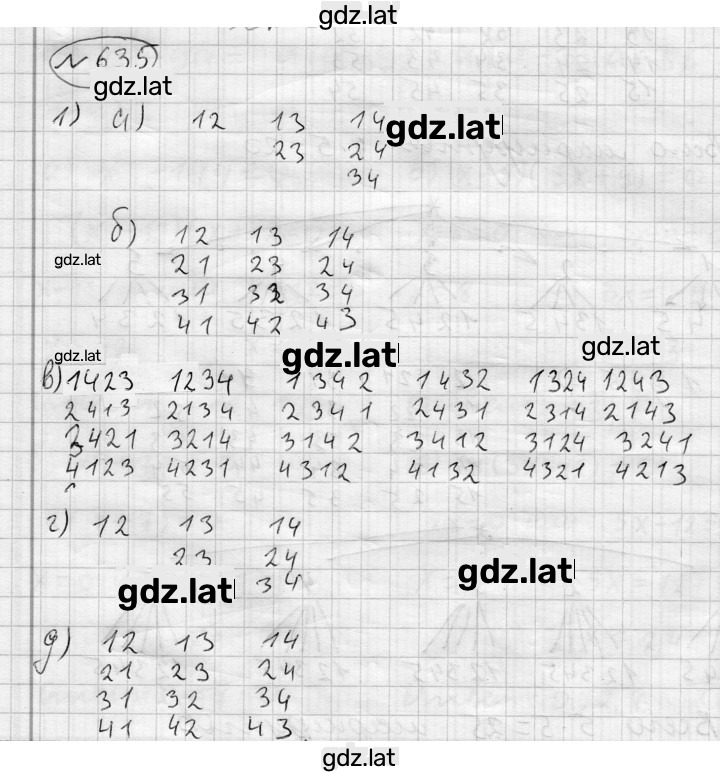 gdz.lat
№ 635
gdz.lat
1) а) 12 13 14
gdz.lat
23 24
34
б) 12 13 14
gdz.lat 21 23 24
31 32 34
41 42 43
gdz.lat gdz.lat gdz.lat
в) 1423 1234 1342 1432 1324 1243
2413 2134 2341 2431 2314 2143
3421 3214 3142 3412 3124 3241
4123 4231 4312 4132 4321 4213
г) 12 13 14
23 24
gdz.lat 34 gdz.lat
д) 12 13 14
21 23 24
31 32 34
41 42 43
gdz.lat